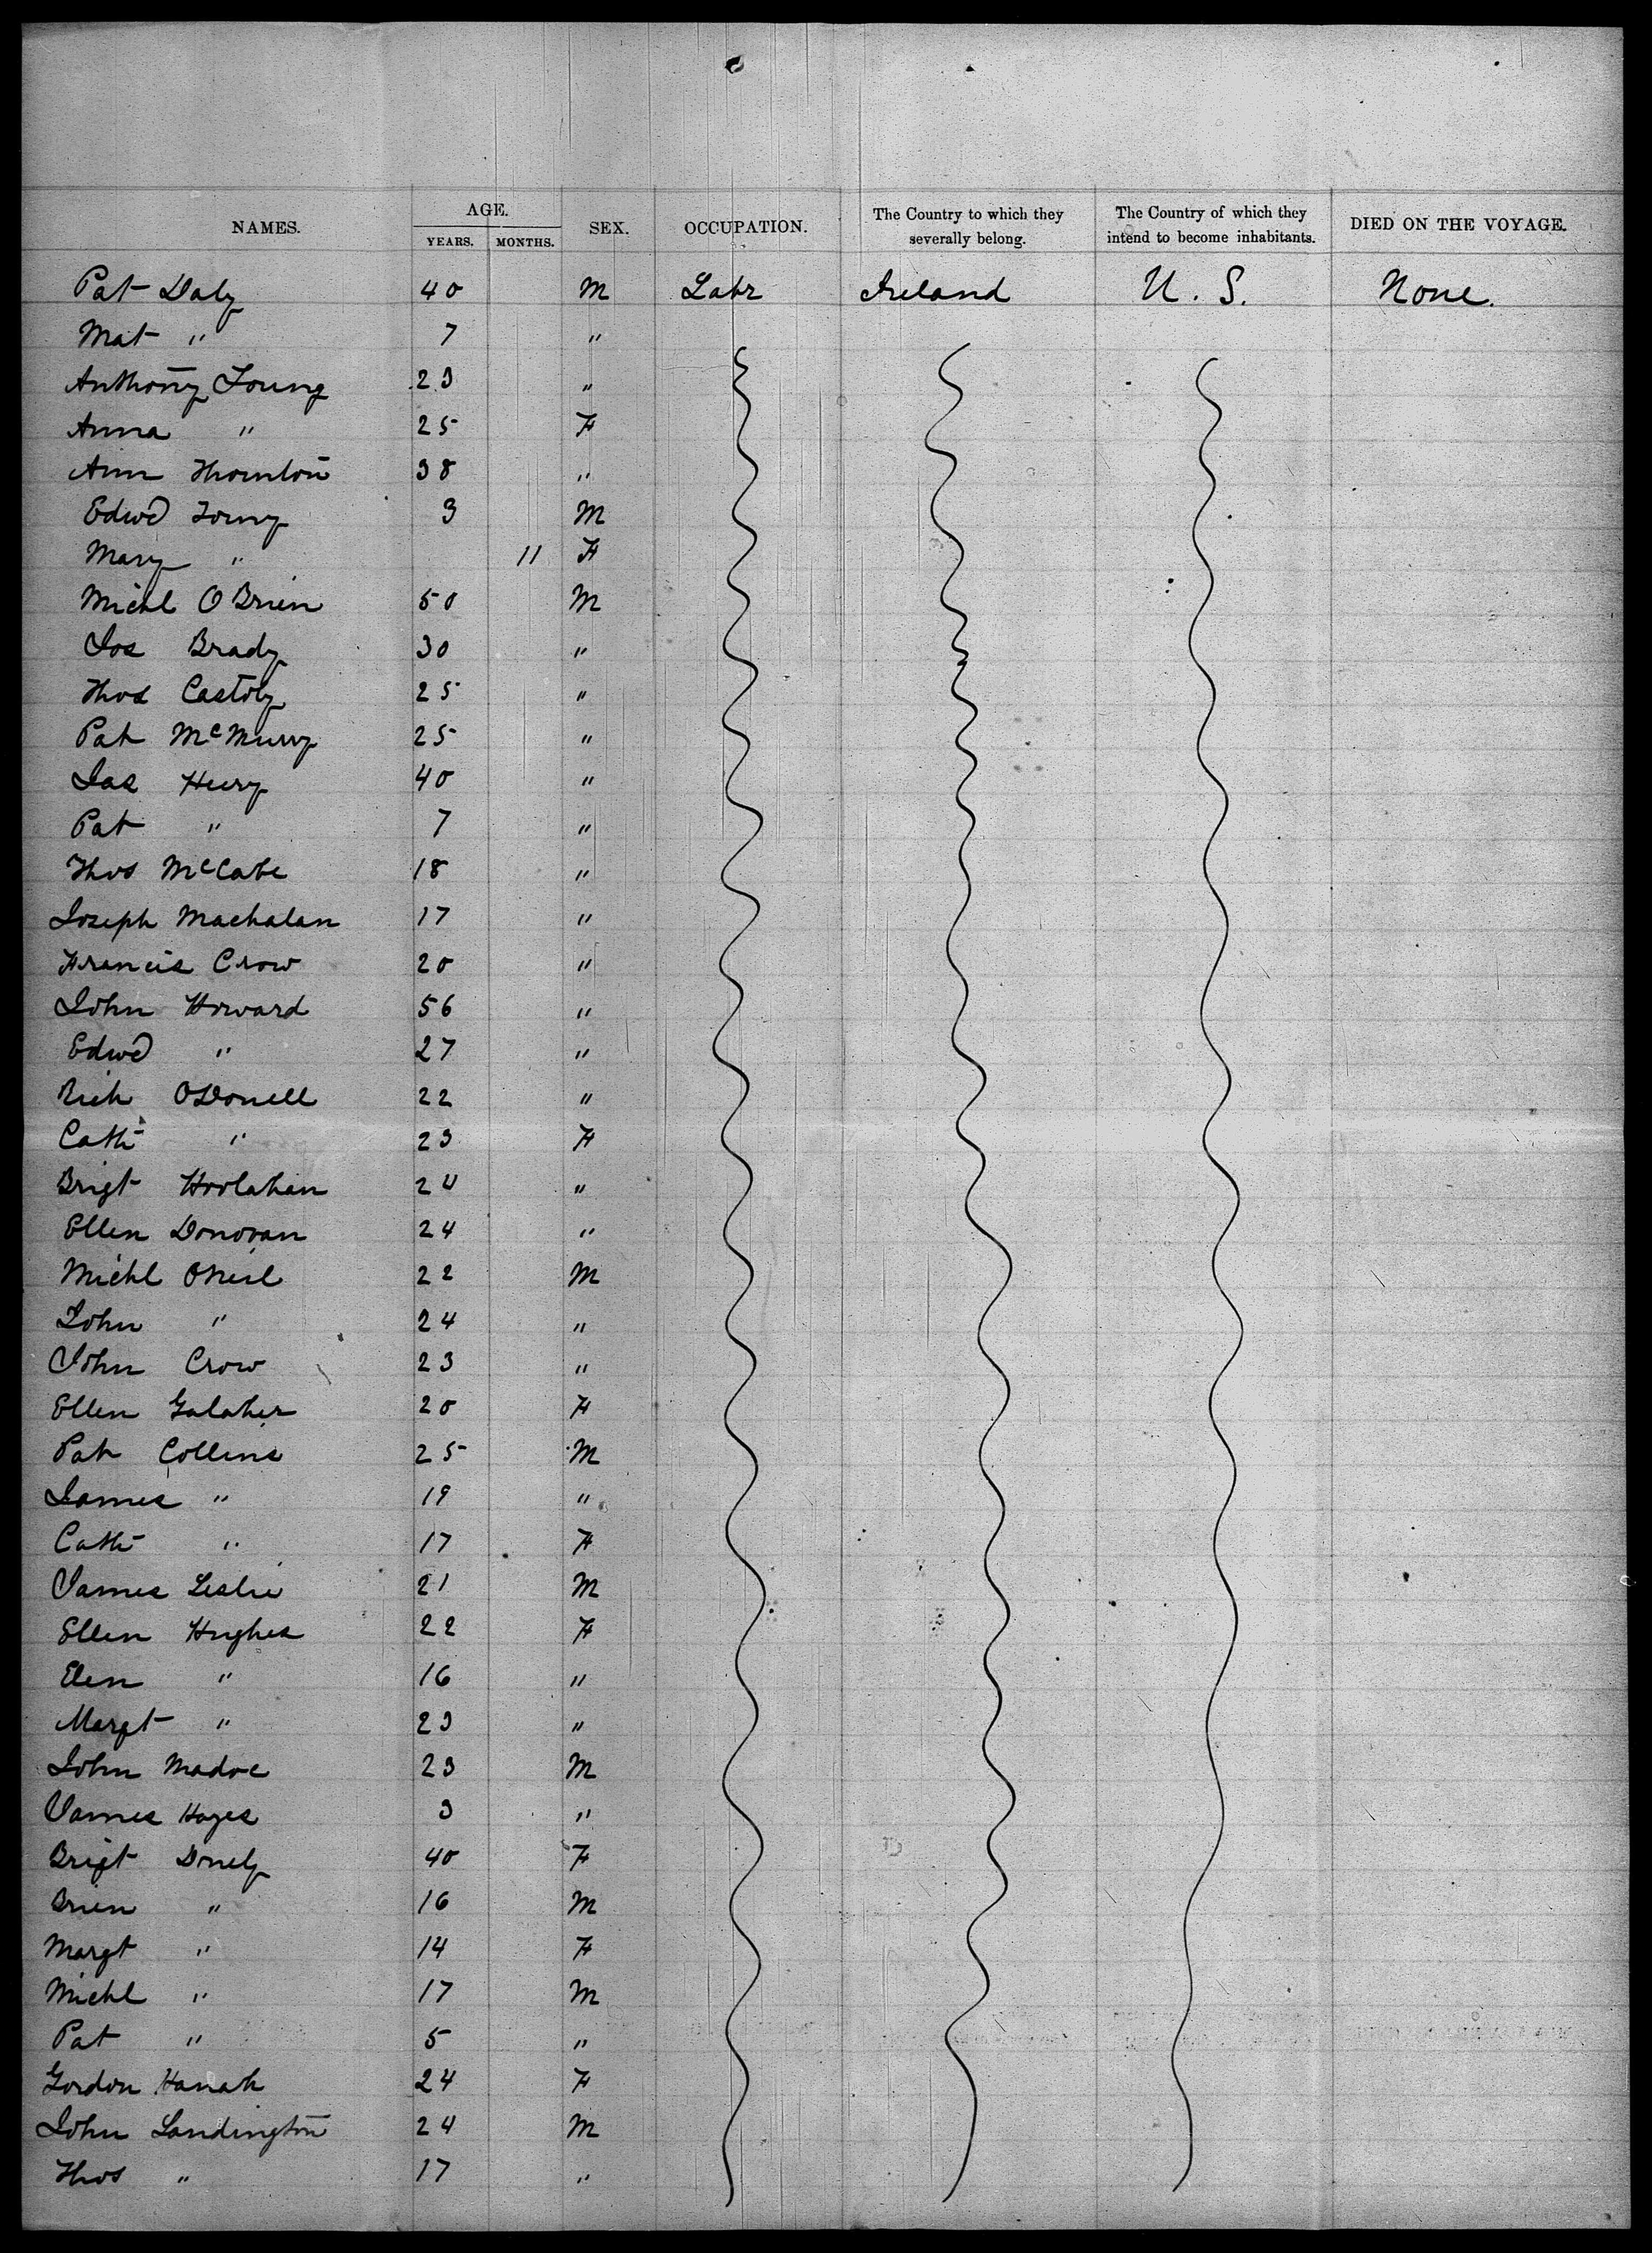 NAMES. AGE. YEARS. MONTHS. SEX. OCCUPATION. The Country to which they severally belong. The Country of which they intend to become inhabitants. DIED ON THE VOYAGE.
Pat Daly 40 M Labr Ireland U. S. None.
Mat " 7 "
Anthony Young 23 "
Anna " 25 F
Ann Thornton 38 "
Edwd Young 3 M
Mary " 11 F
Michl O Brien 50 M
Jos Brady 30 "
Thos Castoly 25 "
Pat McMurry 25 "
Jas Heery 40 "
Pat " 7 "
Thos McCabe 18 "
Joseph Machalan 17 "
Francis Crow 20 "
John Howard 56 "
Edwd " 27 "
Rich ODonell 22 "
Cath " 23 F
Brigt Hoolahan 24 "
Ellen Donovan 24 "
Michl ONeil 22 M
John " 24 "
John Crow 23 "
Ellen Galaher 20 F
Pat Collins 25 M
James " 19 "
Cath " 17 F
James Leslie 21 M
Ellen Hughes 22 F
Elen " 16 "
Margt " 23 "
John Madoc 23 M
James Hayes 3 "
Brigt Donely 40 F
Brien " 16 M
Margt " 14 F
Michl " 17 M
Pat " 5 "
Gordon Hanah 24 F
John Landington 24 M
Thos " 17 "